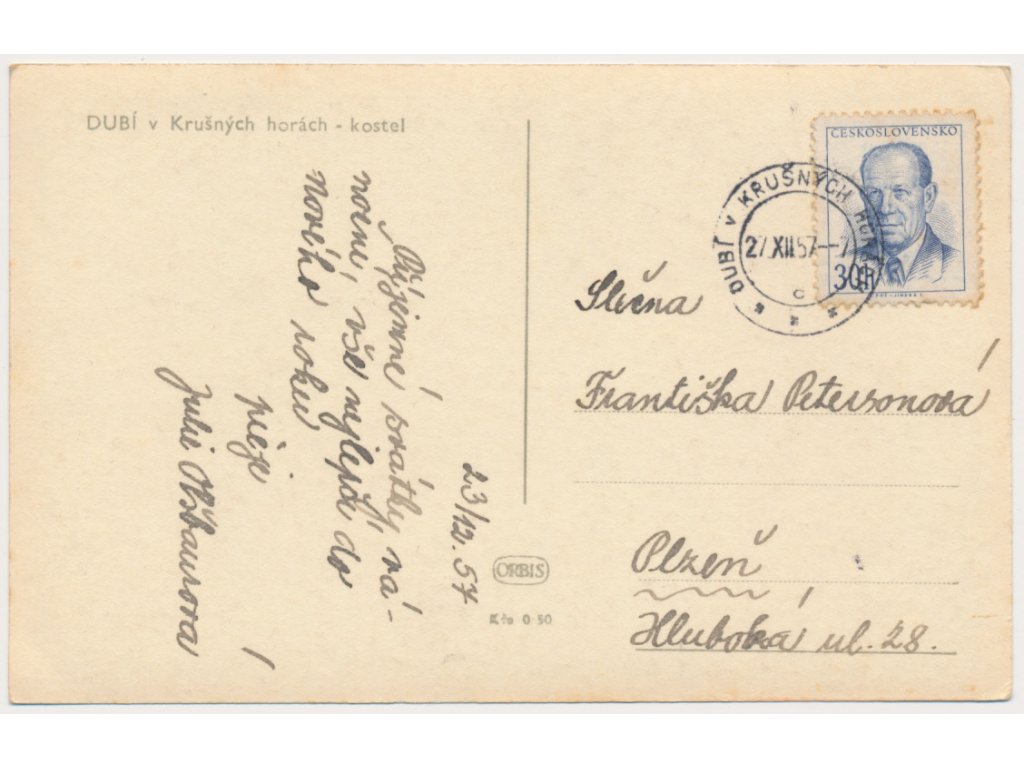 DUBÍ v Krušných horách - kostel
23/12.57
Příjemné svátky vá-
noční, vše nejlepší do
Nového roku
přeje
Julie
ORBIS
Kčs 0·50
ČESKOSLOVENSKO
30h
DUBÍ v KRUŠNÝCH HORÁCH
27.XII.57
c
Slečna
Františka Petersonová
Plzeň
Hluboká ul. 28.